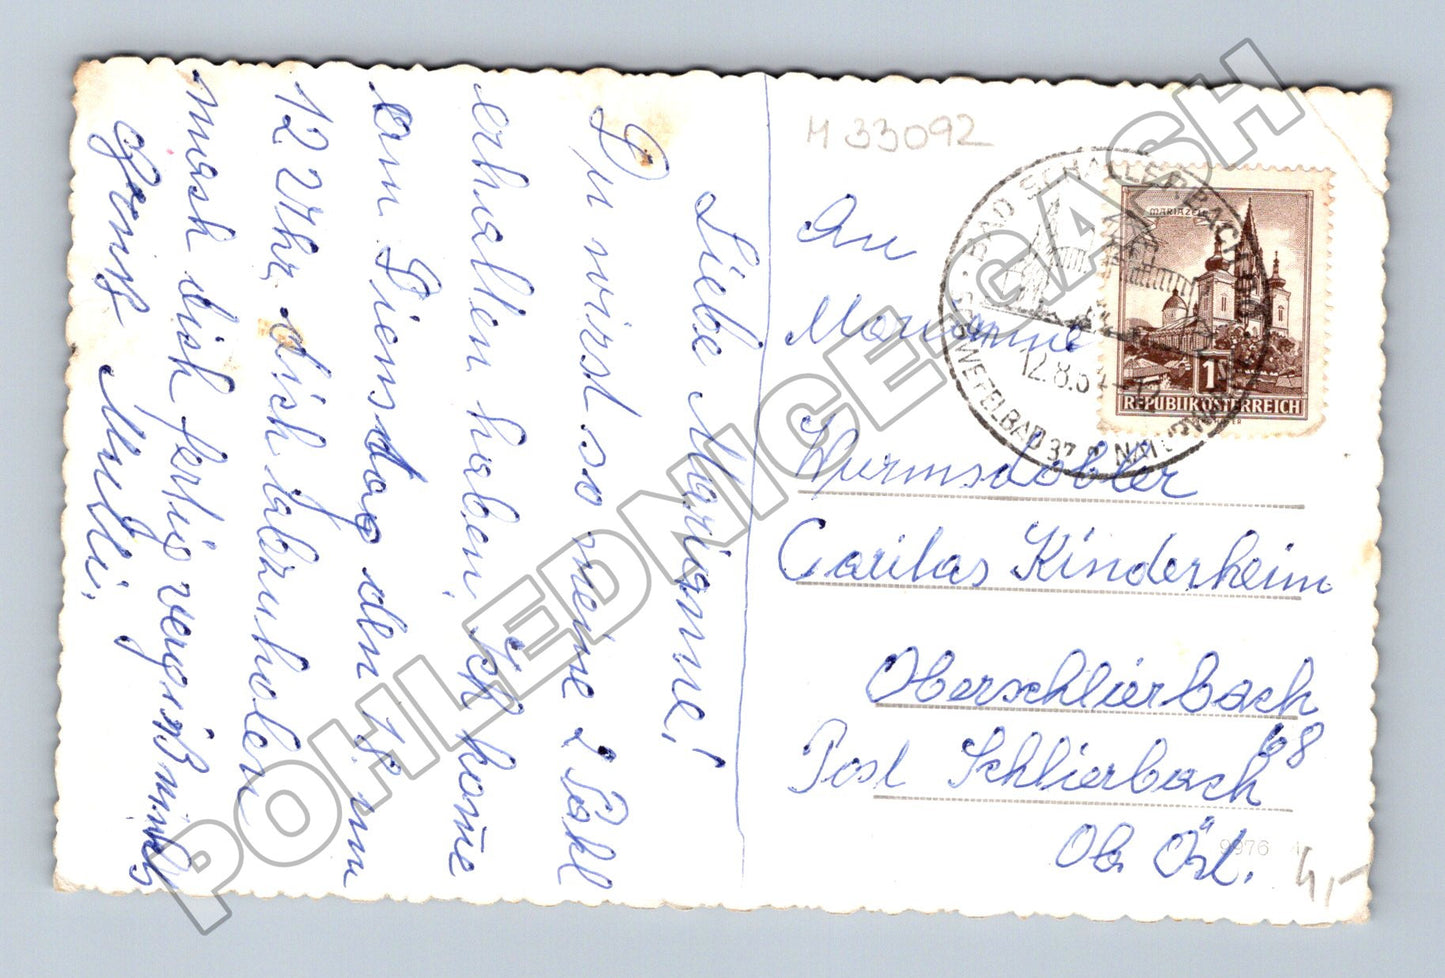 Liebe Marianne!
Du wirst so meine 2
erhalten haben. Ich kom̄e
am Dienstag den 18. um
12 Uhr, dich abzuholen
mach dich fertig vergiß nichts
Gruß Mutti.
M 33092
An
Marianne
Wurmsdobler
Caritas Kinderheim
Oberschlierbach
68
Post Schlierbach
Ob. Öst.
9976
4,-
BAD SCHALLERBACH
12.8.6
SCHWEFELBAD 37°
MARIAZELL
1
REPUBLIK ÖSTERREICH
POHLEDNICE-GASH